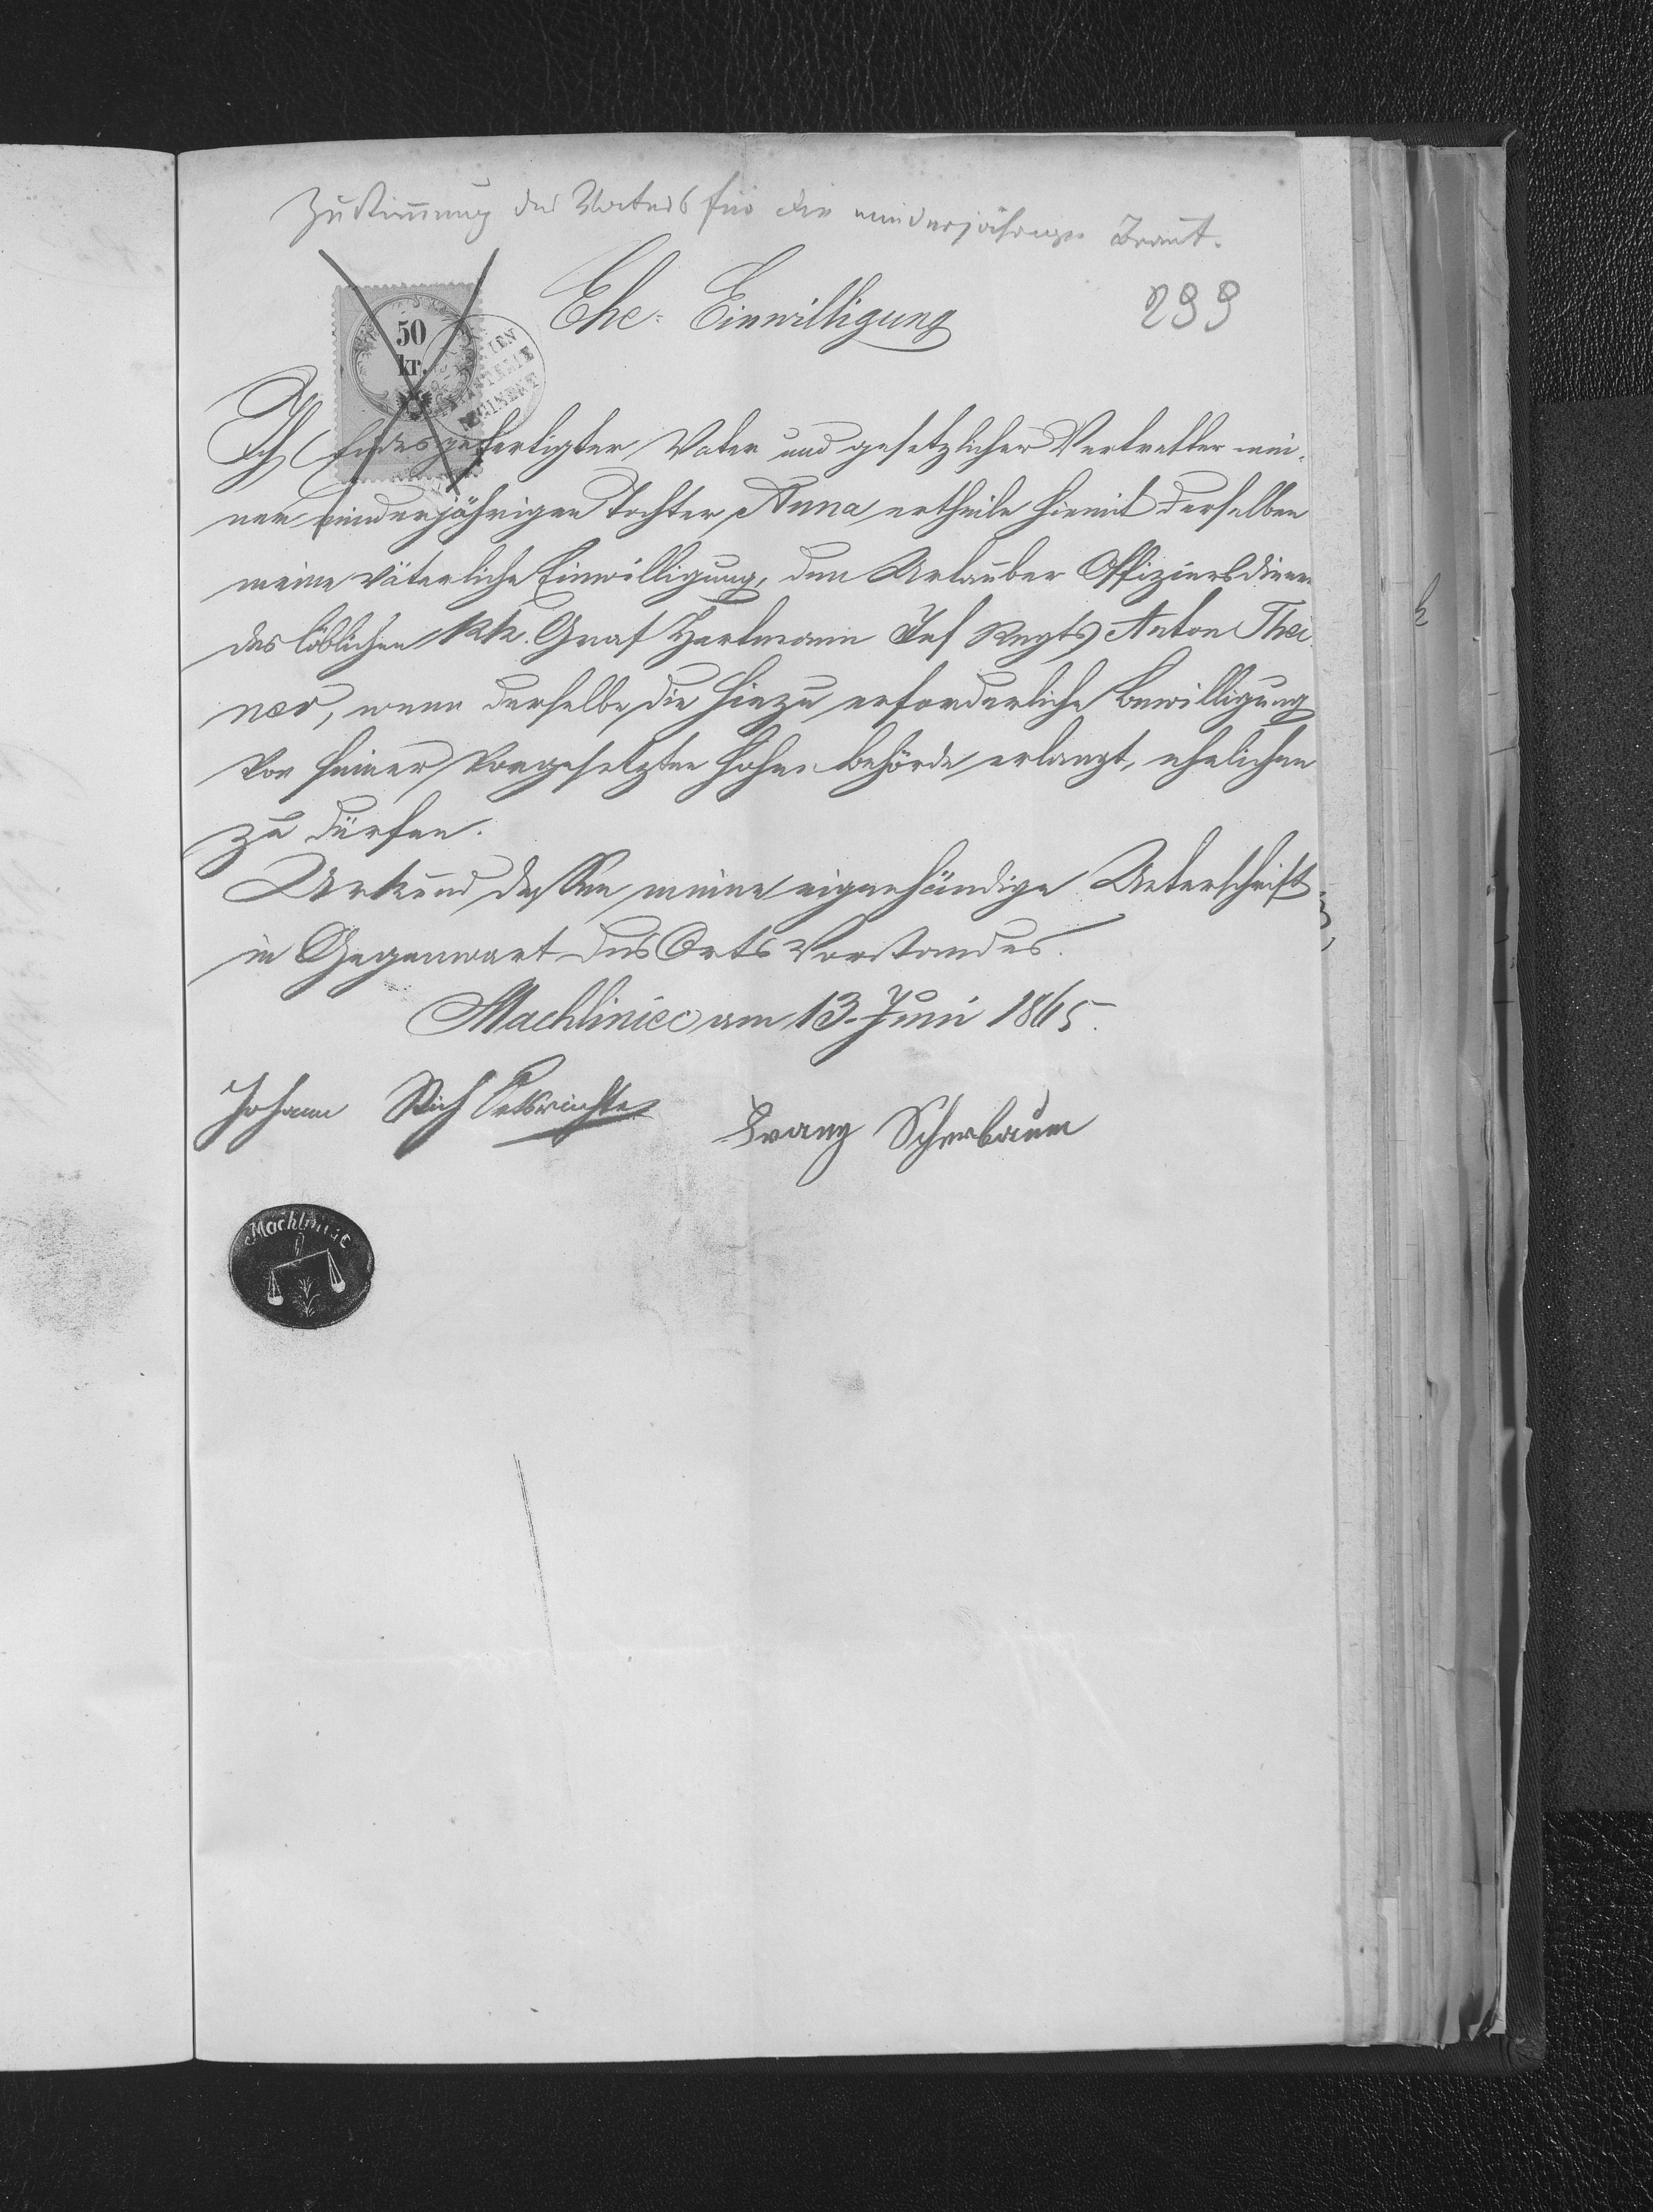 Zustimmung des Vaters für die minderjährige Braut.
Ehe-Einwilligung
299
50
kr.
IEN
INFANTERIE
REGIMENT
Ich Endesgefertigter Vater und gesetzlicher Vertretter mei-
ner minderjährigen Tochter Anna ertheile hiemit derselben
meine väterliche Einwilligung, den Urlauber Offiziersdiener
des löblichen kk. Graf Hartmann Inf Regts Anton Thei-
ner, wenn derselbe die hiezu erforderliche Bewilligung
von seiner vorgesetzten hohen Behörde erlangt, ehelichen
zu dürfen.
Urkund dessen meine eigenhändige Unterschrift
in Gegenwart des Orts Vorstandes.
Machliniec am 13. Juni 1865.
Johann Ortsrichter
Franz Scherbaum
Machliniec